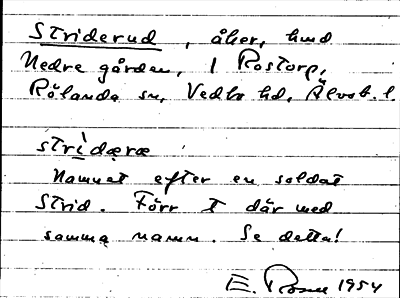 Striderud, åker, hmd
Nedre gården, 1 Rostorp,
Rölanda sn, Vedbo hd, Älvsb. l.
strìdæræ
Namnet efter en soldat
Strid. Förr T där med
samma namn. Se detta!
E. Rosell 1954